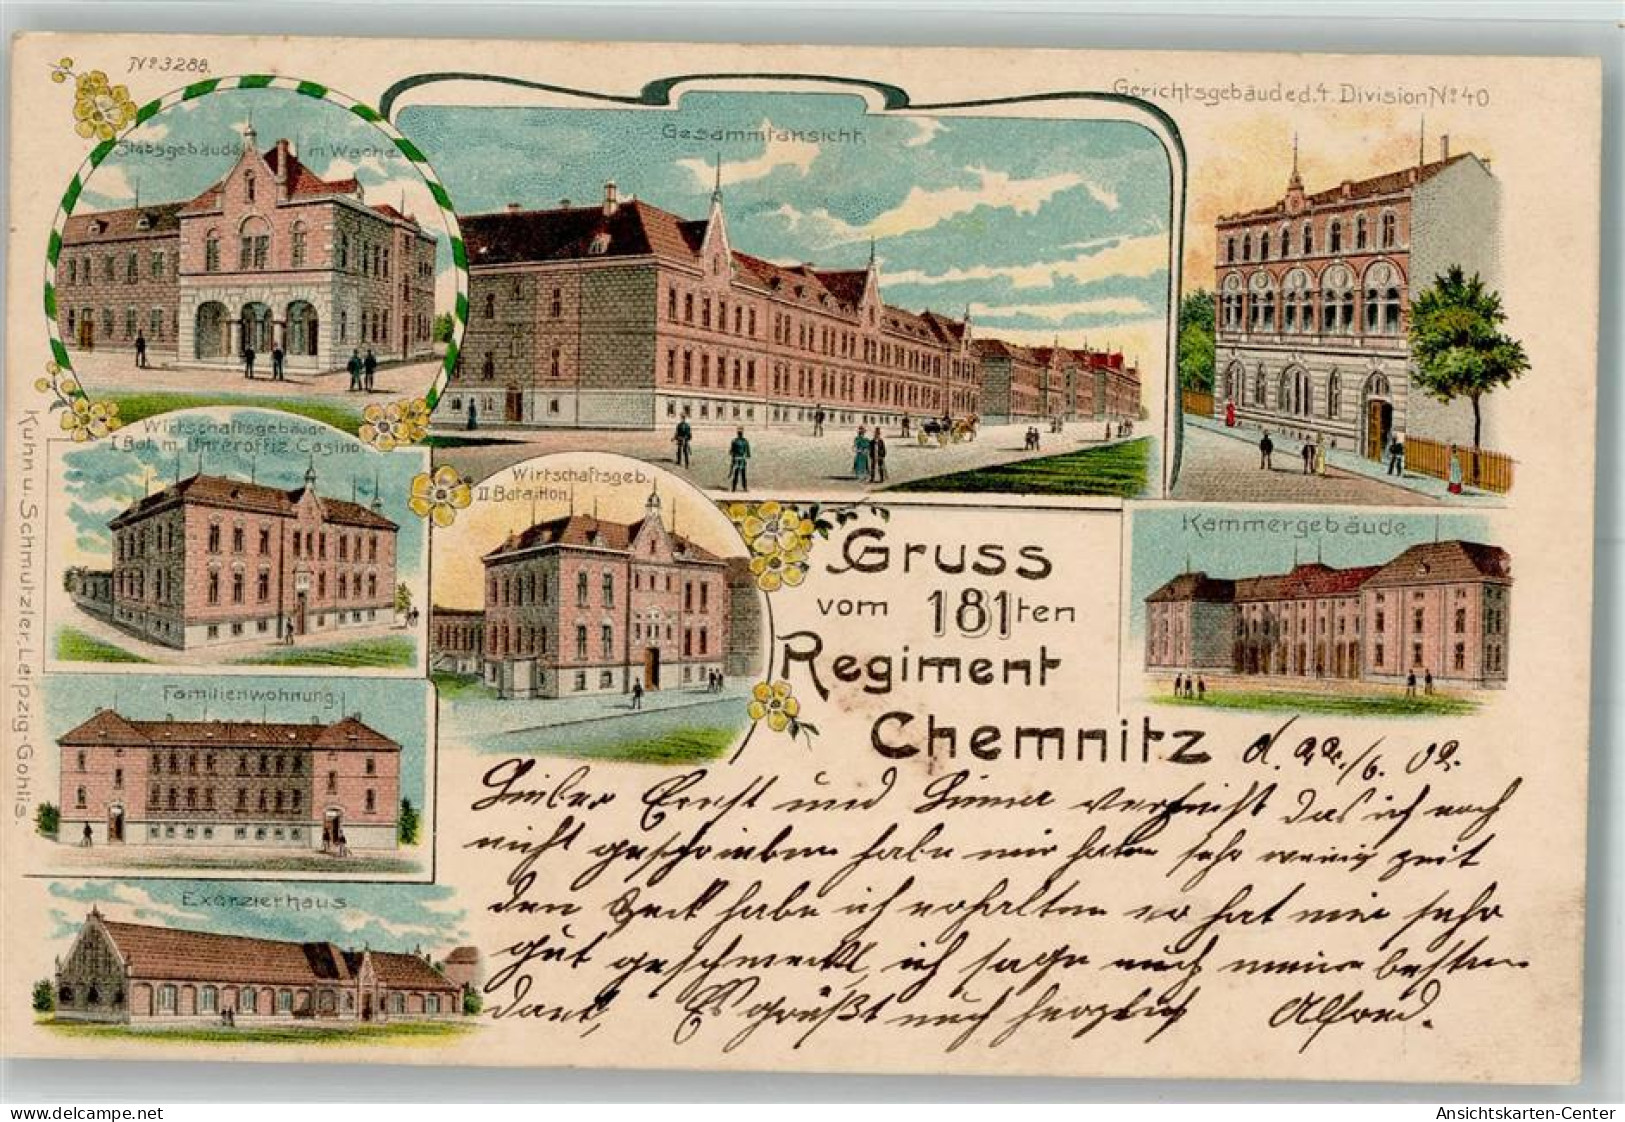 № 3288.
Gerichtsgebäude d. 4. Division № 40
Stabsgebäude m. Wache.
Gesammtansicht.
Wirtschaftsgebäude
I Bat. m. Unteroffiz. Casino.
Wirtschaftsgeb.
II Bataillon.
Gruss
vom 181ten
Regiment
Chemnitz
Kammergebäude
Familienwohnung
Exerzierhaus
Kuhn u. Schmutzler. Leipzig-Gohlis.
d. 22./6. 02.
Lieber Ernst und das ich noch
nicht geschrieben habe wir haben sehr wenig zeit
den habe ich erhalten er hat mir sehr
gut geschmeckt, ich sage euch meinen besten
dank, Es grüßt euch herzlich Alfred.
delcampe.net
Ansichtskarten-Center